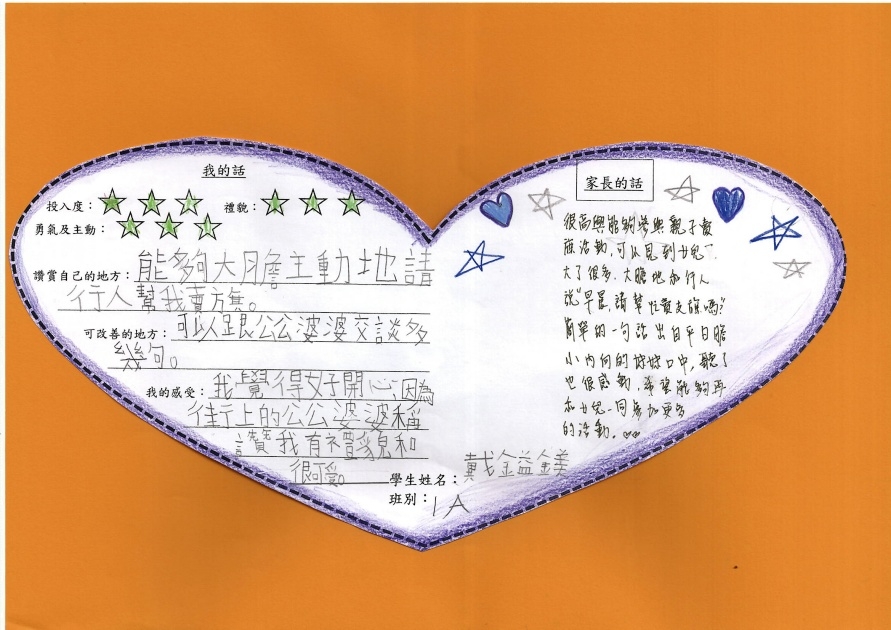 我的話
投入度：
禮貌：
勇氣及主動：
讚賞自己的地方：能夠大膽主動地請
行人幫我賣方旗。
可改善的地方：可以跟公公婆婆交談多
幾句。
我的感受：我覺得好開心,因為
街上的公公婆婆稱
讚我有禮貌和
很可愛。
家長的話
很高興能夠參與親子
活動,可以見到女兒
大了很多,大膽地和行人
說"早晨,請幫忙買支旗嗎?"
簡單的一句話出自平日膽
小內向的妹妹口中,聽了
也很感動,希望能夠再
和女兒一同參加更多
的活動。
學生姓名：戴鎰鎂
班別：1A